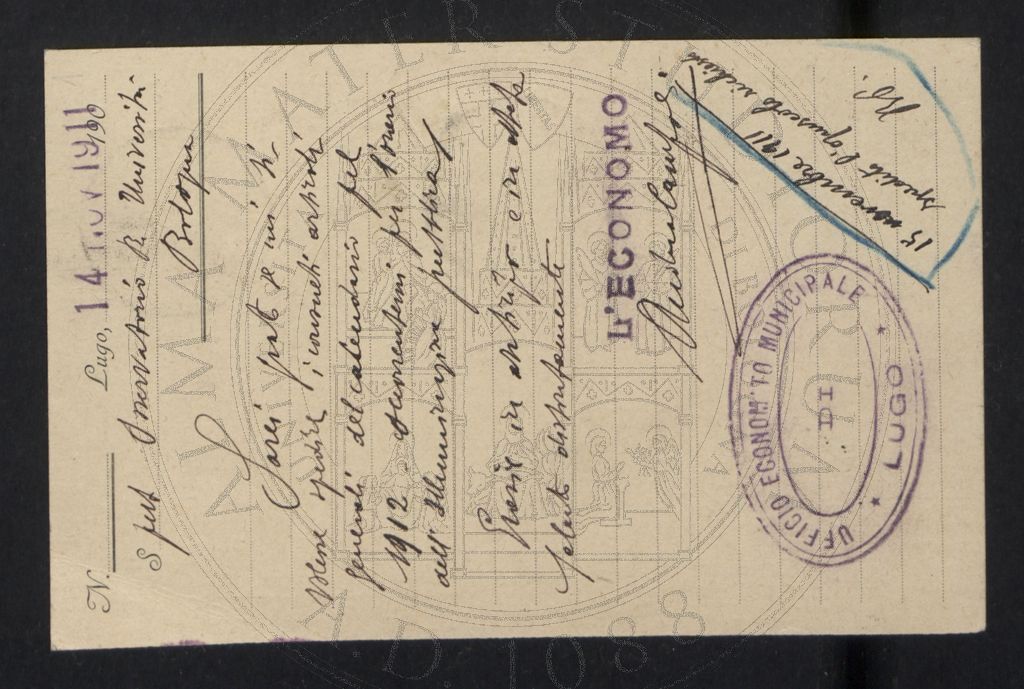 N.
Lugo, 14 NOV 1911 190
Spett Osservatorio R. Università
Bologna
Sarei grato se mi si
spedire i consueti
generali del calendario pel
1912 occorrentemi per l'orario
dell'Illuminazione pubblica
Grazie in anticipo ed
saluto distintamente
L'ECONOMO
UFFICIO ECONOM'TO MUNICIPALE
DI
LUGO
15 novembre 1911
Spedito l'opuscolo richiesto
ALMA MATER STUDIORUM
A.D. 1088